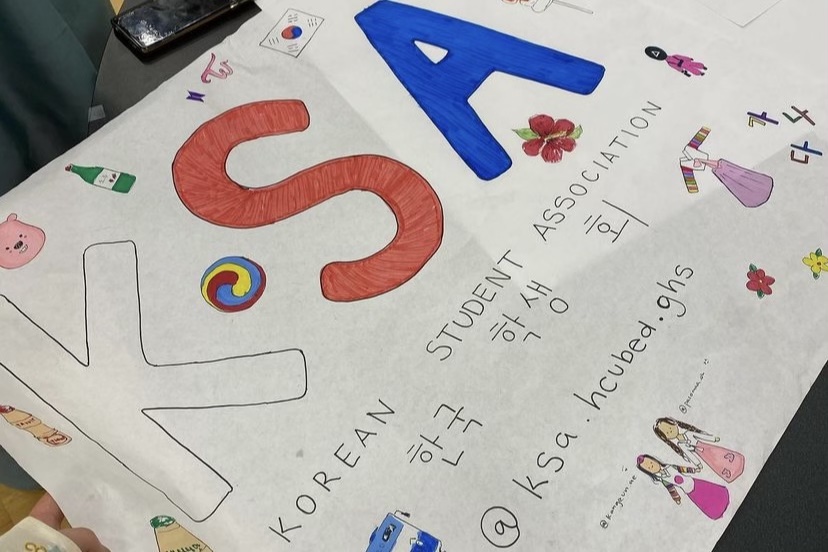 KSA
KOREAN STUDENT ASSOCIATION
한국 학생 회
@ksa.hcubed.ghs
가 나
다